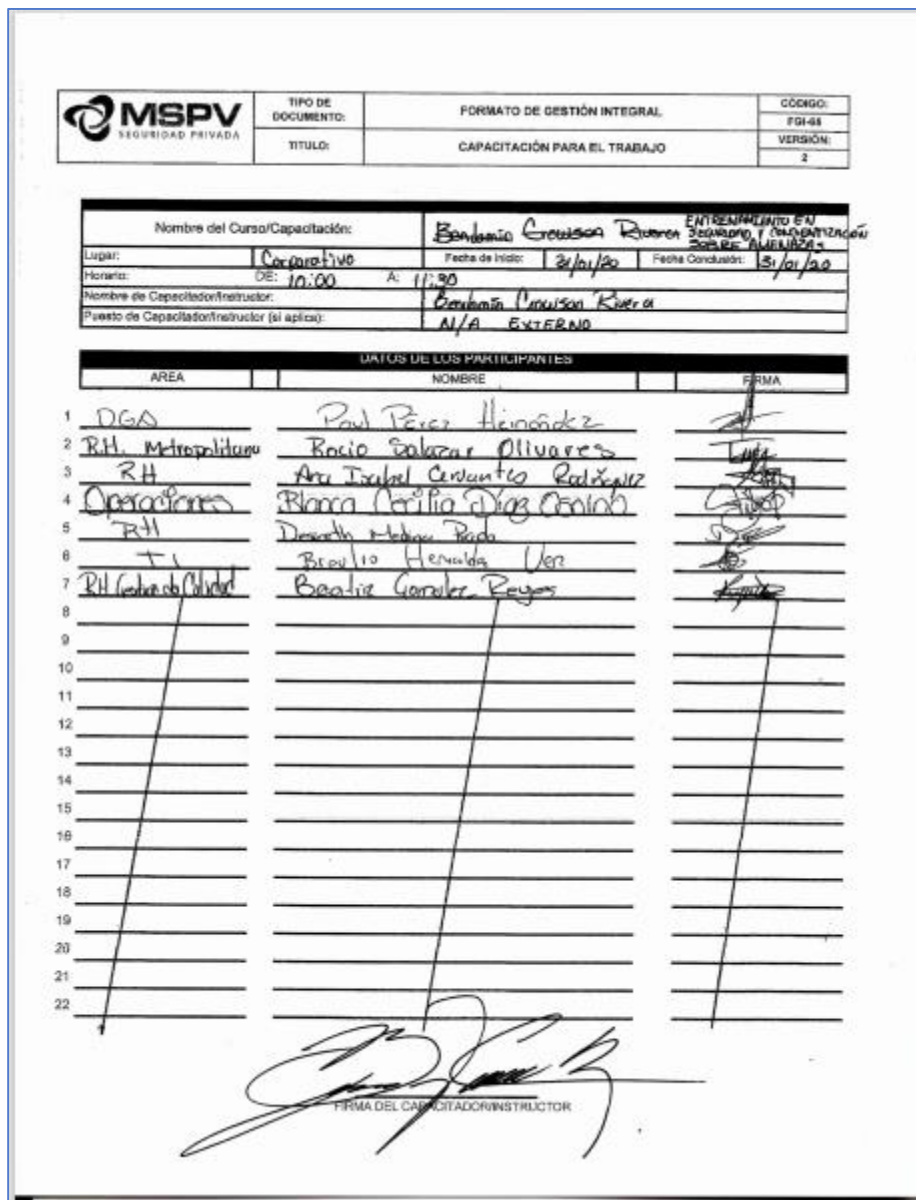 MSPV
SEGURIDAD PRIVADA
TIPO DE DOCUMENTO:
FORMATO DE GESTIÓN INTEGRAL
CÓDIGO:
FGI-68
TITULO:
CAPACITACIÓN PARA EL TRABAJO
VERSIÓN:
2
Nombre del Curso/Capacitación:
Rivera ENTRENAMIENTO EN
SEGURIDAD Y CONCIENTIZACIÓN
SOBRE AMENAZAS
Lugar: Corporativo Fecha de Inicio: 31/01/20 Fecha Conclusión: 31/01/20
Horario: DE: 10:00 A: 11:30
Nombre de Capacitador/Instructor: Rivera
Puesto de Capacitador/Instructor (si aplica): N/A EXTERNO
DATOS DE LOS PARTICIPANTES
AREA NOMBRE FIRMA
1 DGA Paul Pérez Hernández
2 R.H. Metropolitano Rocio Salazar Olivares
3 RH Ana Isabel Cervantes Rodríguez
4 Operaciones Blanca Cecilia Díaz
5 RH Medina Prado
6 TI Braulio
7 RH Gestion de Calidad Beatriz Gonzalez Reyes
8
9
10
11
12
13
14
15
16
17
18
19
20
21
22
FIRMA DEL CAPACITADOR/INSTRUCTOR